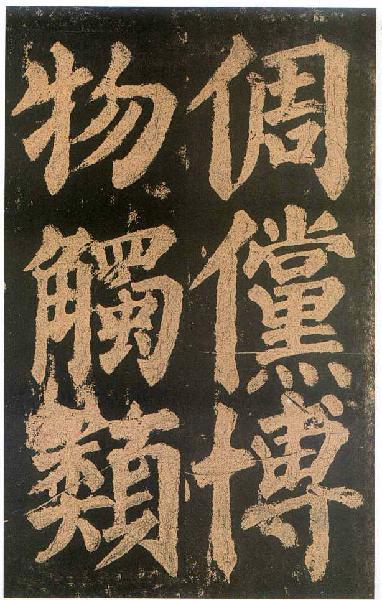 倜儻博
物觸類